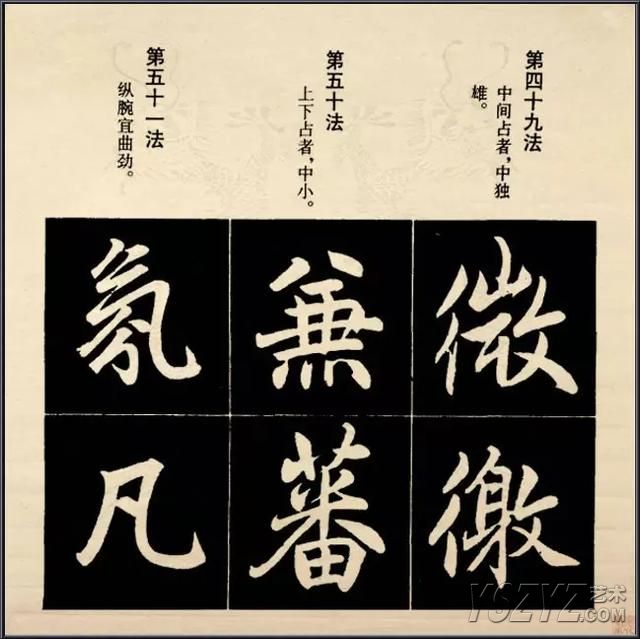 第四十九法
中间占者，中独
雄。
微
徼
第五十法
上下占者，中小。
兼
蕃
第五十一法
纵腕宜曲劲。
氛
凡
YSZYZ艺术
.COM